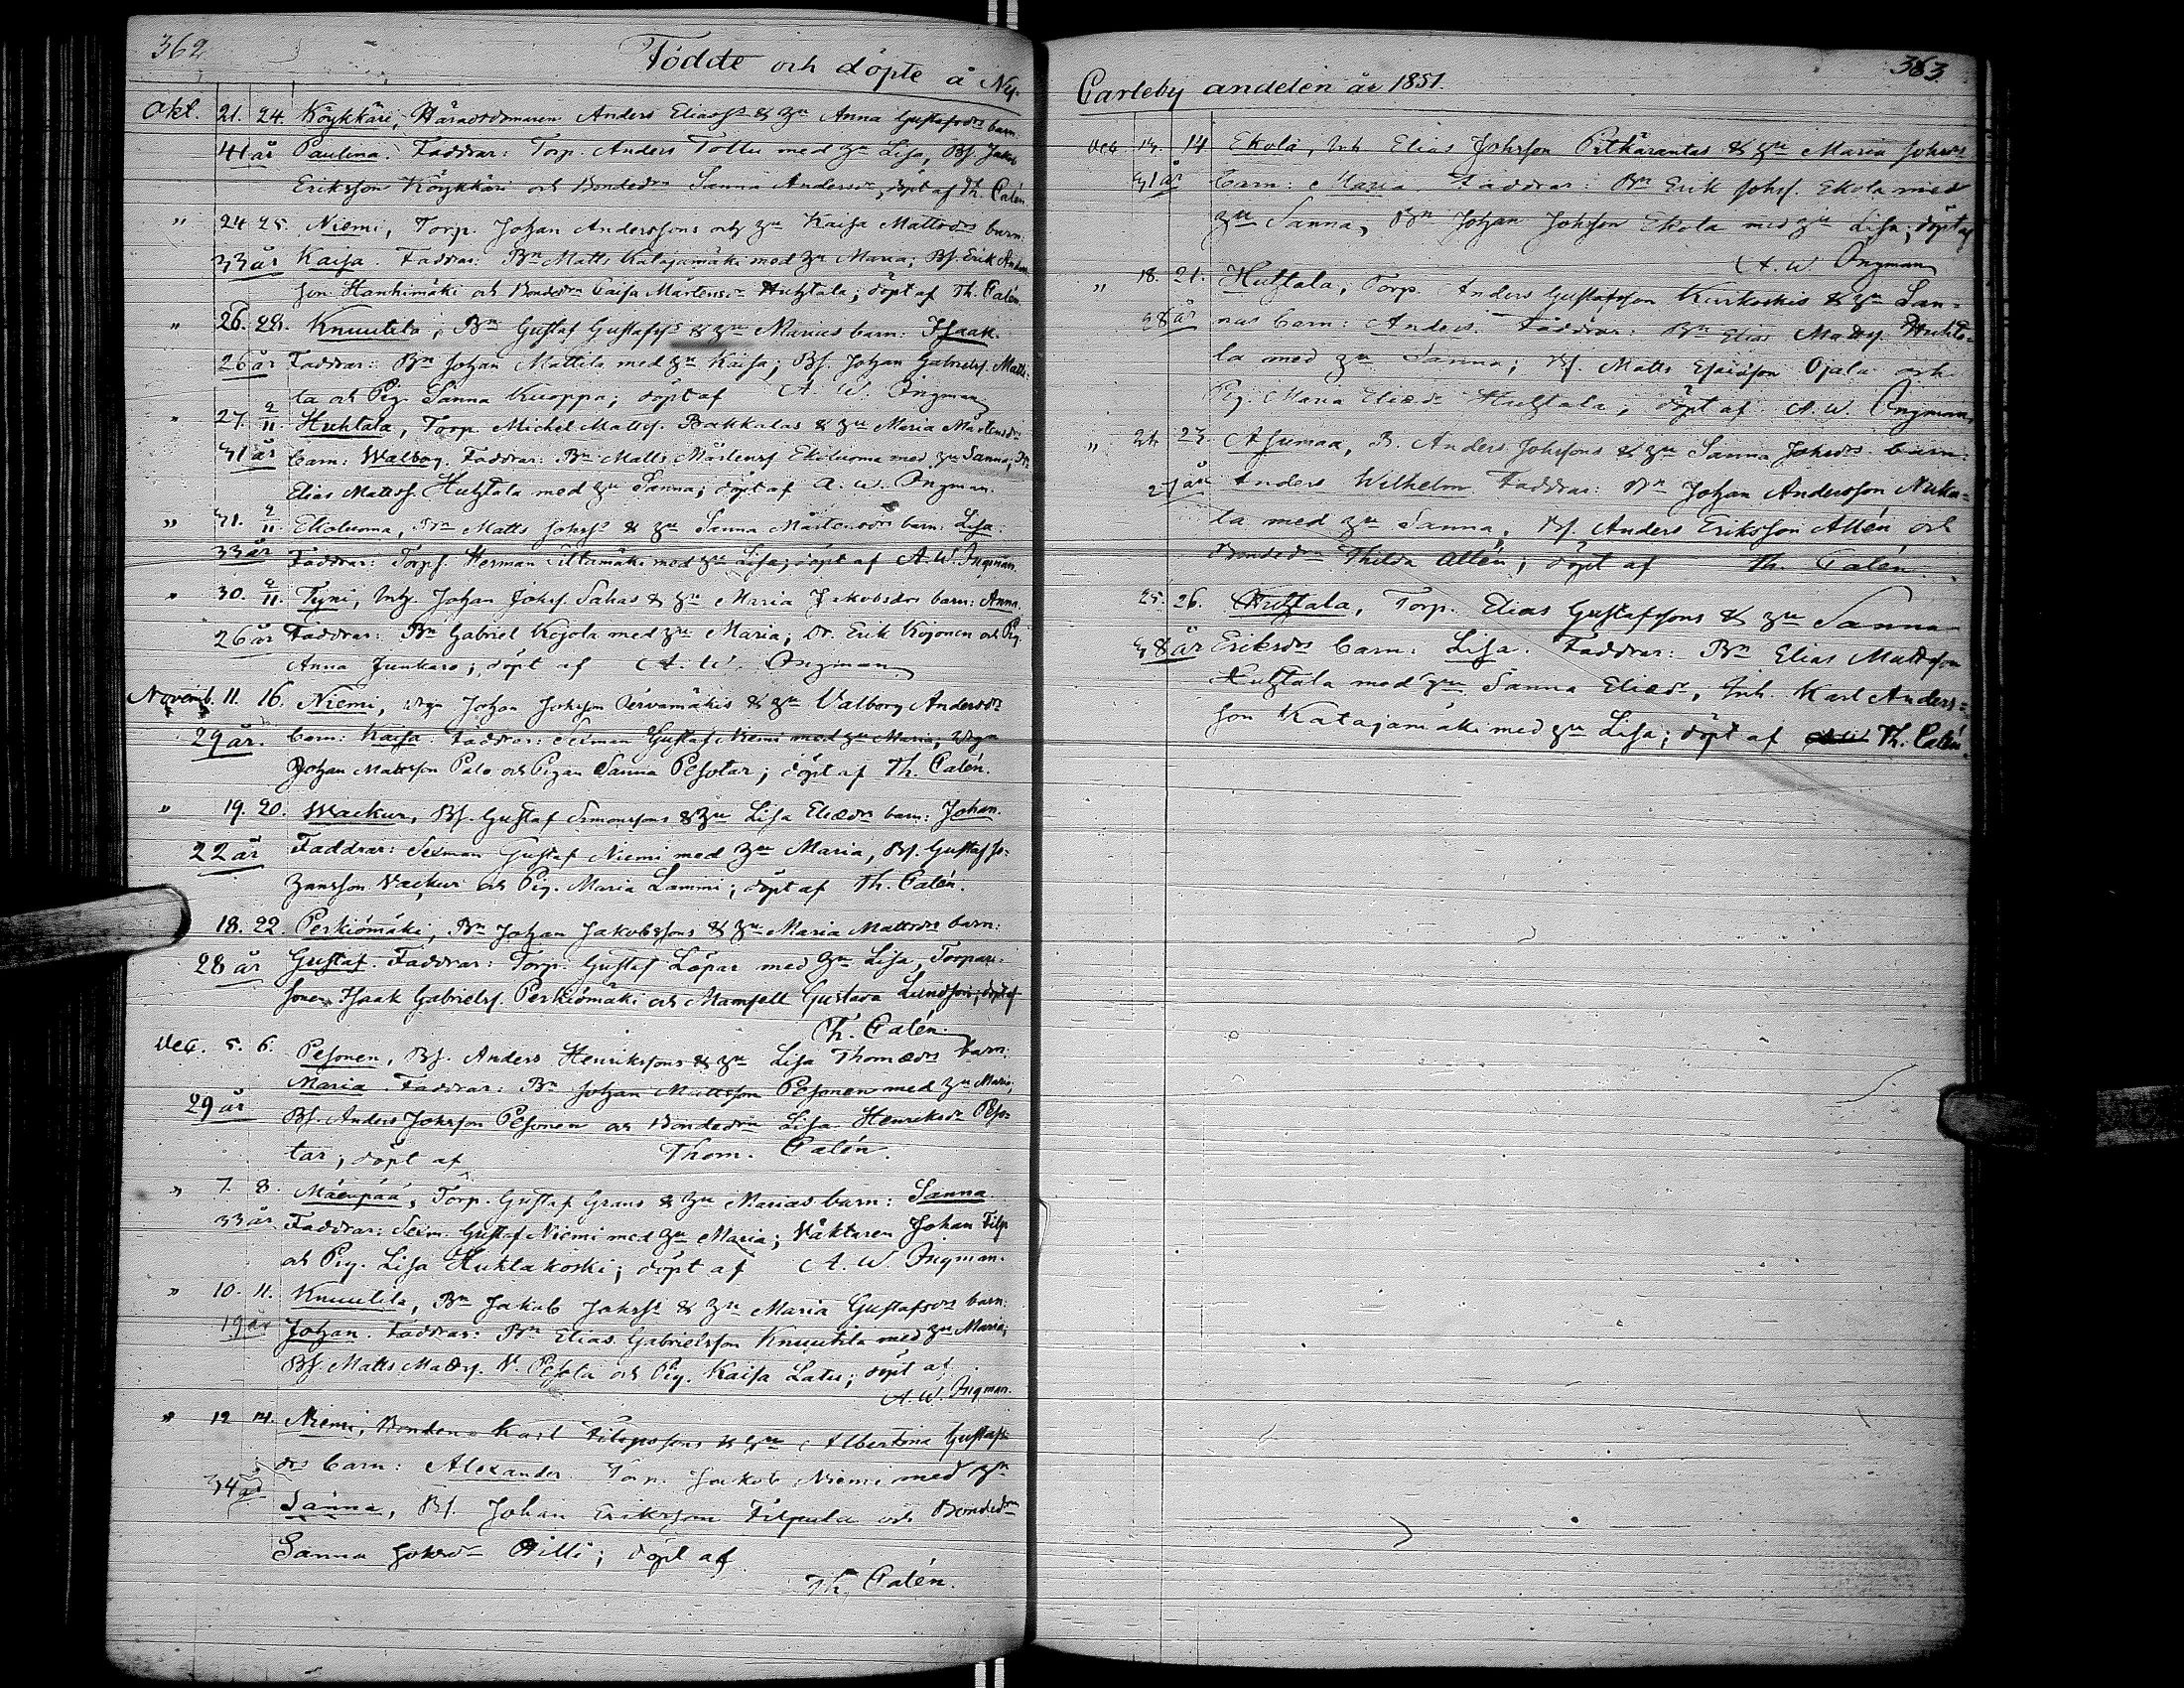 362
Födde och döpte å Ny
Okt. 21. 24. Köykkäri, Häradsdomaren Anders Eliass: & hu Anna Gustafsdrs barn:
41 år Paulina. Faddrar: Torp. Anders Tottu med hu Lisa, Bs. Jakob
Eriksson Köykkäri och Bondedn Sanna Andersdr, döpt af Th. Calén
" 24 25. Niemi, Torp. Johan Anderssons och hu Kaisa Mattsdrs barn:
33 år Kaisa. Faddrar: Bn Matts Katajamäki med hu Maria; Bs. Erik Anders-
son Hanhimäki och Bondedn Caisa Mårtensdr Huhtala; döpt af Th. Calén
" 26. 28. Knuutila, Bn Gustaf Gustafss: & hu Marias barn: Isaak.
26 år Faddrar: Bn Johan Mattila med hu Kaisa; Bs. Johan Gabrielss. Matti-
la och Pig. Sanna Kuoppa; döpt af A. W. Ingman
" 27. 2/11. Huhtala, Torp. Michel Matts. Bakkalas & hu Maria Mårtensdrs
41 år barn: Walborg. Faddrar: Bn Matts Mårtens. Ekoluoma med hu Sanna, Bn
Elias Mattss. Huhtala med hu Sanna; döpt af A. W. Ingman.
" 31. 2/11. Ekoluoma, Bn Matts Johss: & hu Sanna Mårtensdrs barn: Lisa.
33 år Faddrar: Torp. Herman med hu Lisa; döpt af A. W. Ingman.
" 30. 2/11. Tyni, Inh. Johan Johss. Sahas & hu Maria Jakobsdrs barn: Anna.
26 år Faddrar: Bn Gabriel Kojola med hu Maria, Dr. Erik Kojonen och Pig.
Anna Junkaro; döpt af A. W. Ingman
Novemb. 11. 16. Niemi, Johan Johsson Pervamäkis & hu Valborg Andersdrs
29 år. barn: Kaisa. Faddrar: Sexman Gustaf Niemi med hu Maria; Drgn
Johan Mattsson Palo och Pigan Sanna Pesotar; döpt af Th. Calén.
" 19. 20. Wackur, Bs. Gustaf Simonssons & hu Lisa Eliædrs barn: Johan.
22 år Faddrar: Sexman Gustaf Niemi med hu Maria, Bs. Gustaf Jo-
hansson Vackur och Pig. Maria Lammi; döpt af Th. Calén.
18. 22. Perkiömäki, Bn Johan Jakobssons & hu Maria Mattsdrs barn:
28 år Gustaf. Faddrar: Torp. Gustaf Löpar med hu Lisa, Torpare-
sonen Isaak Gabrielss. Perkiömäki och Mamsell Gustava Lundson; döpt af
Th. Calén.
Dec. 5. 6. Pesonen, Bs. Anders Henrikssons & hu Lisa Thomædrs barn:
Maria. Faddrar: Bn Johan Mattsson Pesonen med hu Maria,
29 år Bs. Anders Johsson Pesonen och Bondedrn Lisa Henriksdr Peso-
tar; döpt af Thom. Calén.
" 7. 8. Mäenpää, Torp. Gustaf Grans & hu Marias barn: Sanna
33 år Faddrar: Sexm. Gustaf Niemi med hu Maria; Väktaren Johan Filp
och Pig. Lisa Huhtakoski; döpt af A. W. Ingman.
" 10. 11. Knuutila, Bn Jakob Johss: & hu Maria Gustafsdrs barn:
19 år Johan. Faddrar: Bn Elias Gabrielsson Knuutila med hu Maria;
Bs. Matts Mattss. N. Pesola och Pig. Kaisa Latu; döpt af
A. W. Ingman.
" 12 14. Niemi, Bonden Karl Filipssons & hu Albertina Gustafs-
drs barn: Alexander. Torp. Jakob Niemi med hu
34 år Sanna, Bs. Johan Eriksson Filpula och Bondedrn
Sanna Johsdr Pilli; döpt af
Th. Calén.
363
Carleby andelen år 1851.
Dec 13. 14 Ekola, Inh. Elias Johsson Pitkärantas & hu Maria Johsdrs
31 år barn: Maria. Faddrar: Bn Erik Johss. Ekola med
hu Sanna, Bn Johan Johsson Ekola med hu Lisa; döpt af
A. W. Ingman
" 18. 21. Huhtala, Torp. Anders Gustafsson Kurkoskis & hu San-
28 år nas barn: Anders. Faddrar: Bn Elias Mattss. Huhta-
la med hu Sanna; Bs. Matts Esaiæson Ojala och
Pig. Maria Eliædr Huhtala; döpt af A. W. Ingman
" 21. 23. Asumaa, B. Anders Johssons & hu Sanna Johsdrs barn:
21 år Anders Wilhelm. Faddrar: Bn Johan Andersson Nuka-
la med hu Sanna, Bs. Anders Eriksson Allén och
Bondedrn Thilda Allén; döpt af Th. Calén.
25. 26. Huhtala, Torp. Elias Gustafssons & hu Sanna
38 år Eriksdrs barn: Lisa. Faddrar: Bn Elias Mattsson
Huhtala med hu Sanna Eliædr, Inh. Karl Anders-
son Katajamäki med hu Lisa; döpt af Th. Calén